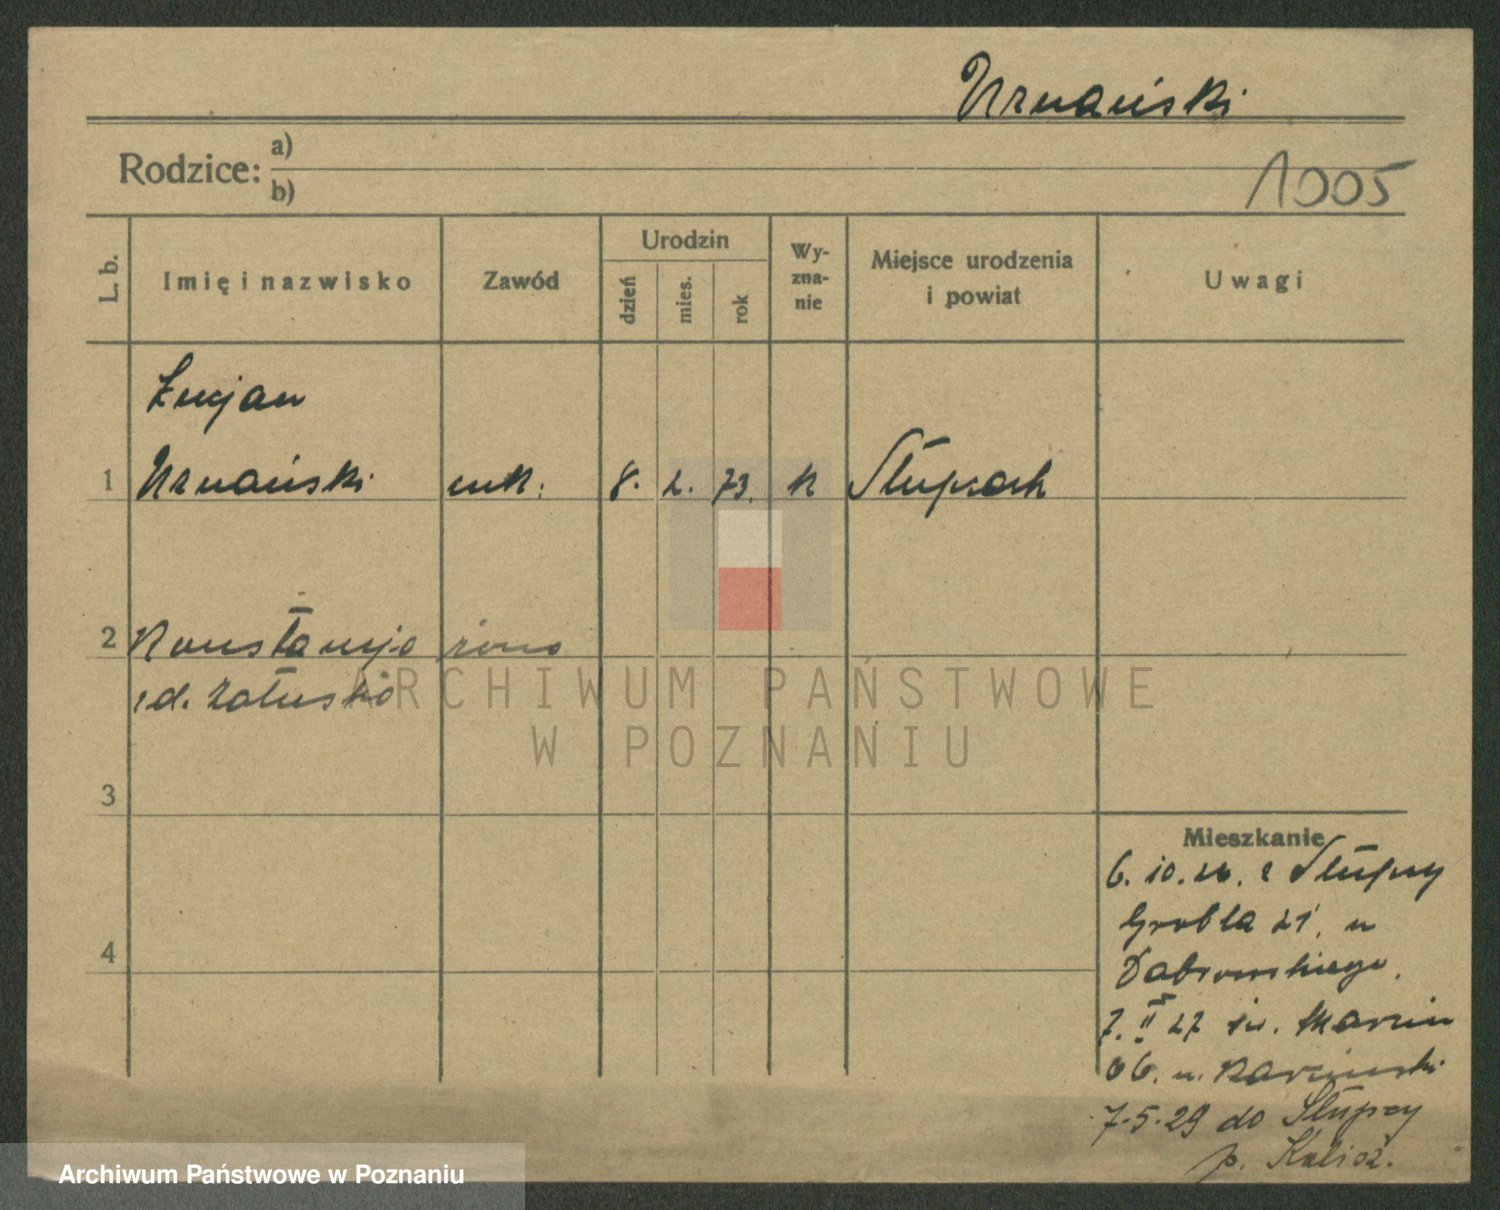 Urnański
Rodzice: a)
b)
1005
L. b.
Imię i nazwisko
Zawód
Urodzin
dzień
mies.
rok
Wy-
zna-
nie
Miejsce urodzenia
i powiat
Uwagi
Łucjan
1 Urnański 8. 2. 73. k Słupcach
2 Konstancja żona
Załuska
3
4
Mieszkanie
6. 10. 26. z Słupcy
Grobla 21. u
Dabrowskiego.
7. II 27 św. Marcin
66. u.
7.5.29 do Słupcy
p. Kalisz.
ARCHIWUM PAŃSTWOWE
W POZNANIU
Archiwum Państwowe w Poznaniu